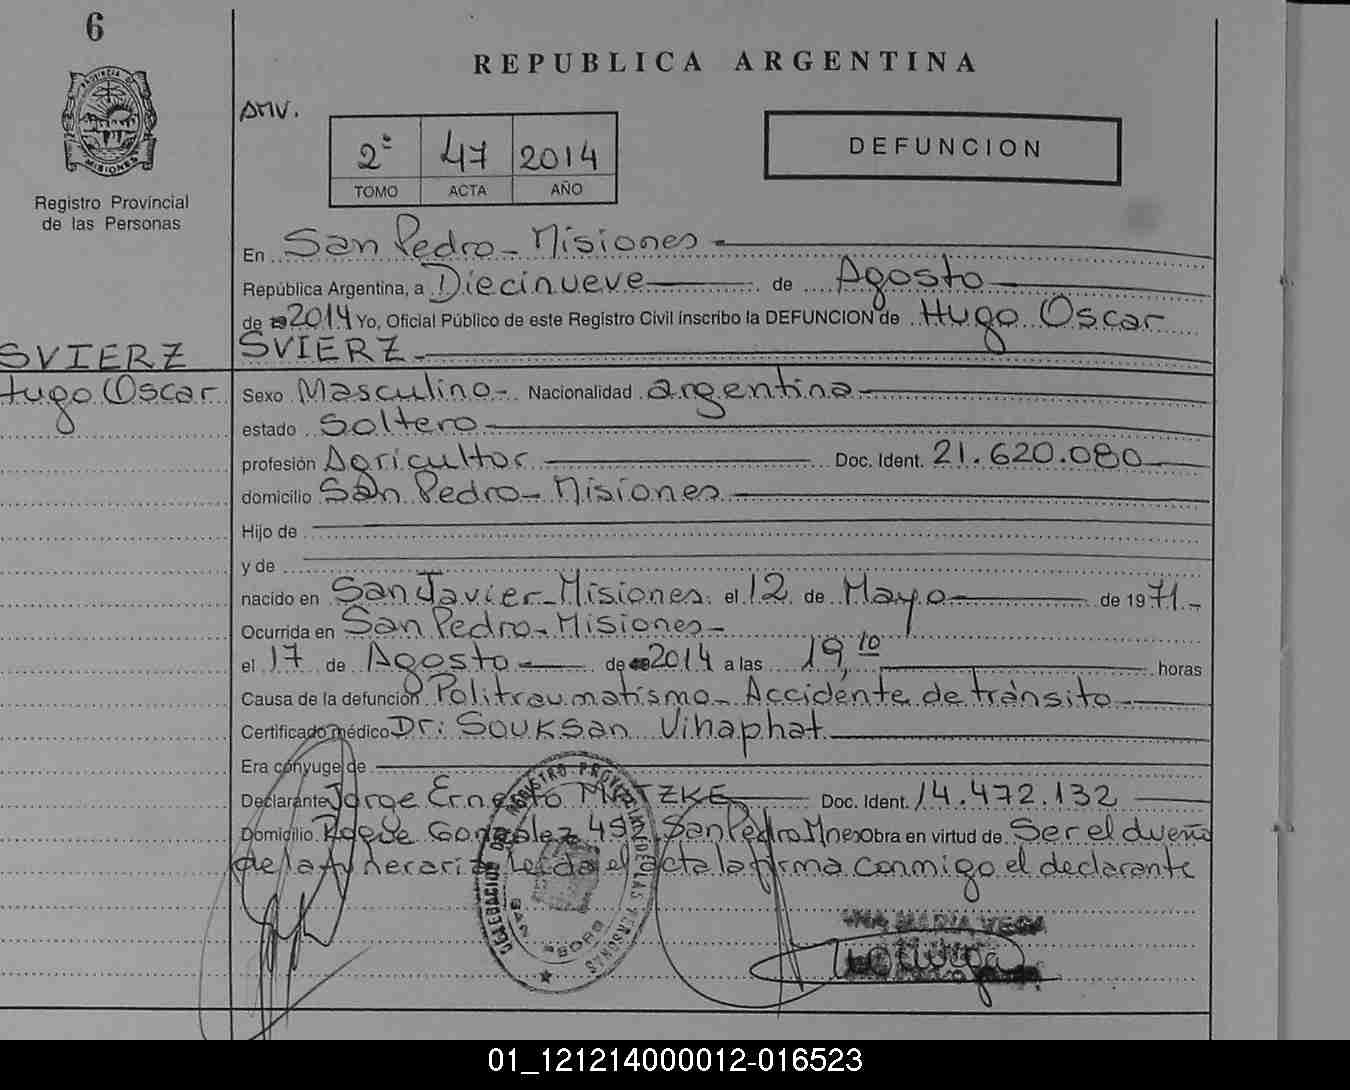 6
PROVINCIA DE
MISIONES
Registro Provincial
de las Personas
REPUBLICA ARGENTINA
DMV.
2º 47 2014
TOMO ACTA AÑO
DEFUNCION
En San Pedro - Misiones -
República Argentina, a Diecinueve de Agosto
de 2014 Yo, Oficial Público de este Registro Civil inscribo la DEFUNCION de Hugo Oscar
SVIERZ -
SVIERZ
Hugo Oscar
Sexo Masculino - Nacionalidad argentina
estado Soltero
profesión Agricultor Doc. Ident. 21.620.080
domicilio San Pedro - Misiones -
Hijo de
y de
nacido en San Javier - Misiones. el 12 de Mayo de 1971 -
Ocurrida en San Pedro - Misiones -
el 17 de Agosto - de 2014 a las 19,10 horas
Causa de la defunción Politraumatismo - Accidente de tránsito
Certificado médico Dr: Souksan Vihaphat
Era cónyuge de
Declarante Jorge Ernesto Doc. Ident. 14.472.132
Domicilio Roque Gonzalez San Pedro Mnes Obra en virtud de Ser el dueño
de la funeraria Leída el acta la firma conmigo el declarante
REGISTRO PROVINCIAL DE LAS PERSONAS
DELEGACION
SAN PEDRO
MARIA VEGA
01_121214000012-016523